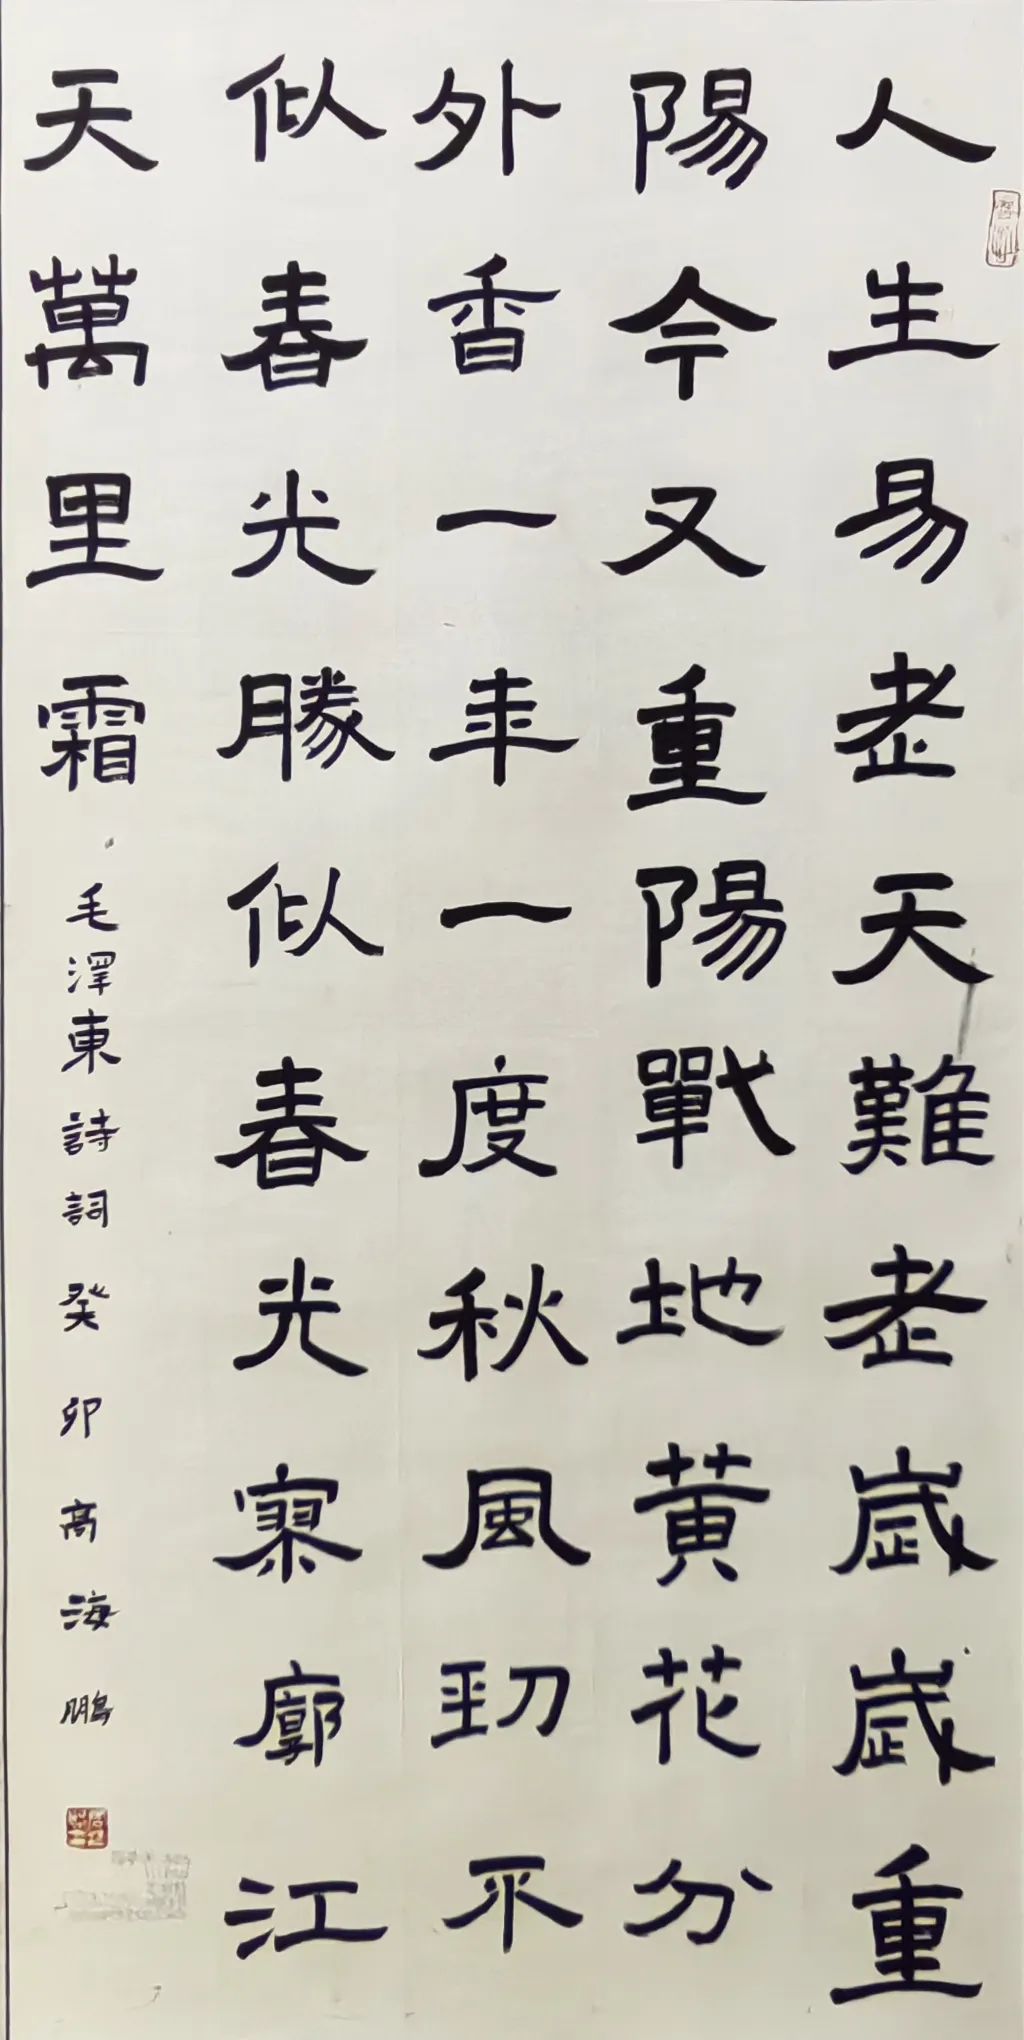 人生易老天難老歲歲重
陽今又重陽戰地黄花分
外香一年一度秋風勁不
似春光勝似春光寥廓江
天萬里霜 毛澤東詩詞 癸卯 高海鵬